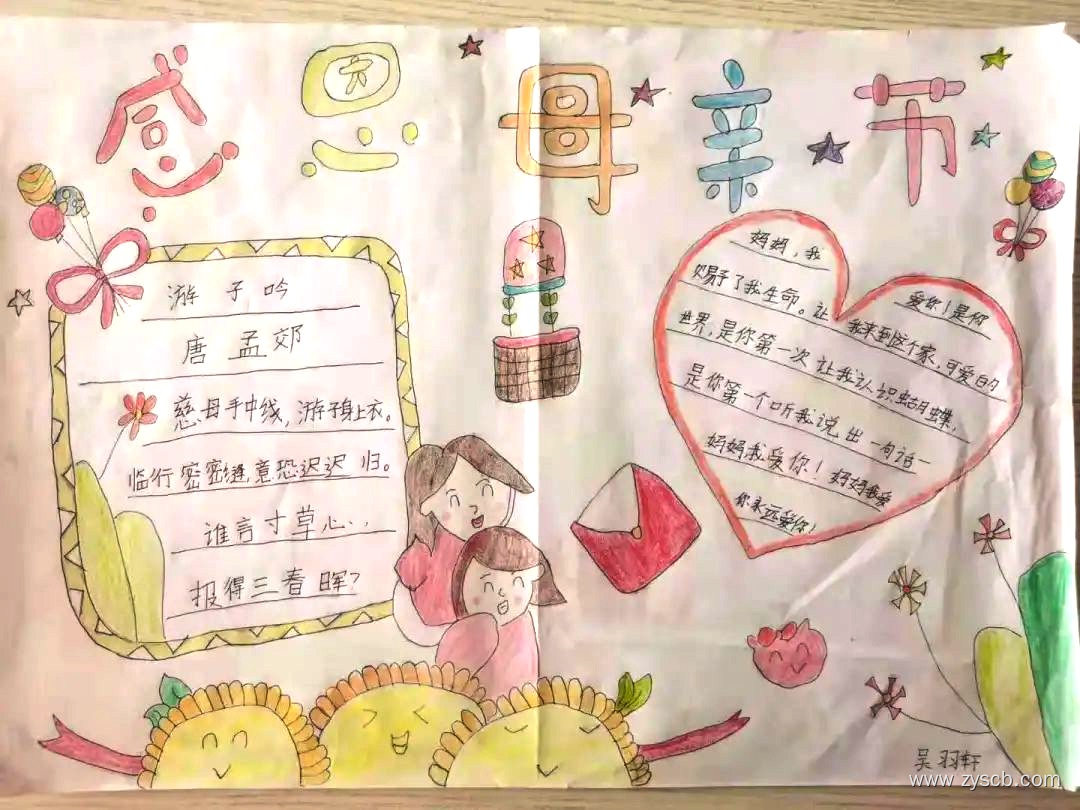 感恩母亲节
游子吟
唐 孟郊
慈母手中线,游子身上衣。
临行密密缝,意恐迟迟归。
谁言寸草心..,
报得三春晖?
妈妈,我爱你!是你
赐予了我生命。让我来到这个家,可爱的
世界,是你第一次让我认识蝴蝶,
是你第一个听我说出一句话一
妈妈我爱你!妈妈我爱
你永远爱你!
吴羽轩
www.zyscb.com